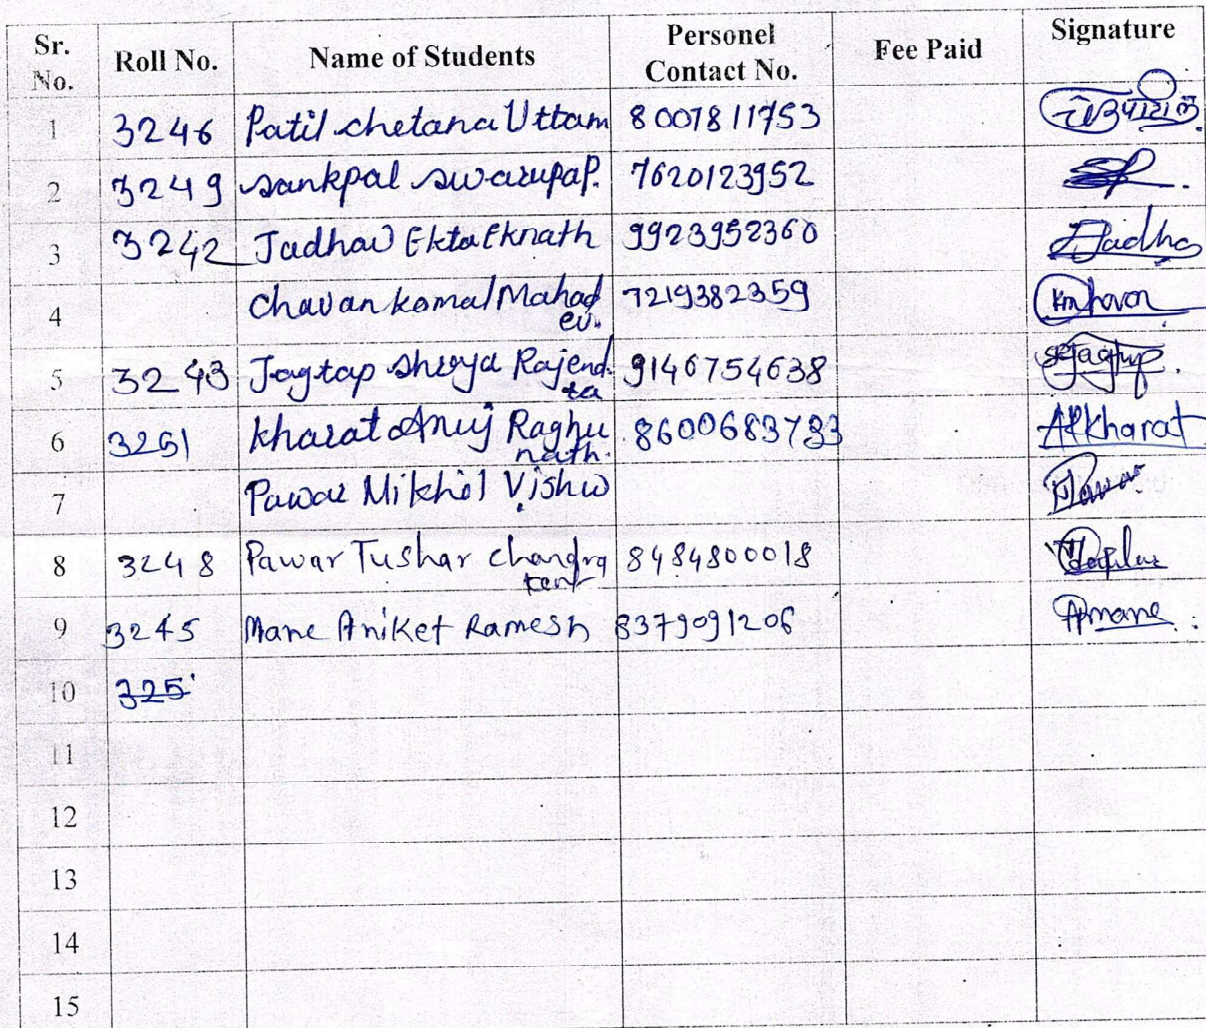 Sr. No. Roll No. Name of Students Personel Contact No. Fee Paid Signature
1 3246 Patil chetana Uttam 8007811753
2 3249 sankpal swarupa P. 7620123952
3 3242 Jadhav Ekta Eknath 9923952360 Jadhav
4 Chavan komal Mahad 7219382359
ev.
5 3243 Jagtap Shreya Rajend. 9146754638
ra
6 3251 kharat Anuj Raghu 8600683733 ARKharat
nath.
7 Pawar Nikhil Vishw
8 3248 Pawar Tushar chandra 8484800018
kant
9 3245 Mane Aniket Ramesh 8379091206 ARmane
10 325
11
12
13
14
15